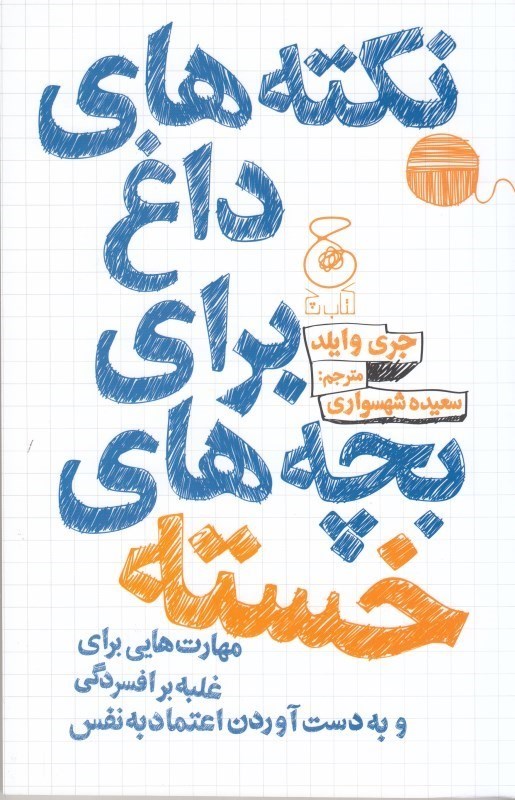 نکته‌های
داغ
برای
بچه‌های
خسته
کتاب چ
جری وایلد
مترجم:
سعیده شهسواری
مهارت‌هایی برای
غلبه بر افسردگی
و به دست آوردن اعتماد به نفس